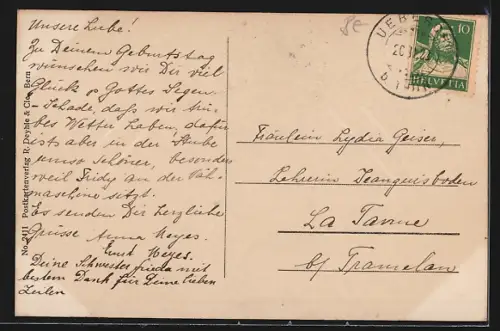 Unsere Liebe!
Zu Deinem Geburtstag
wünschen wir Dir viel
Glück & Gottes Segen
Schade, daß wir trü-
bes Wetter haben, dafür
ists aber in der Stube
umso schöner, besonders
weil Fridy an der Näh
maschine sitzt.
Es senden Dir herzliche
Grüsse Anna Meyes.
Ernst Meyes.
Deine Schwester Frieda mit
bestem Dank für Deine lieben
Zeilen
No. 2111 Postkartenverlag R. Deyhle & Cie, Bern
UEBE
10
HELVETIA
Fräulein Lydia Geiser,
Lehrerin Jeanguisboden
La Tanne
b/ Tramelan